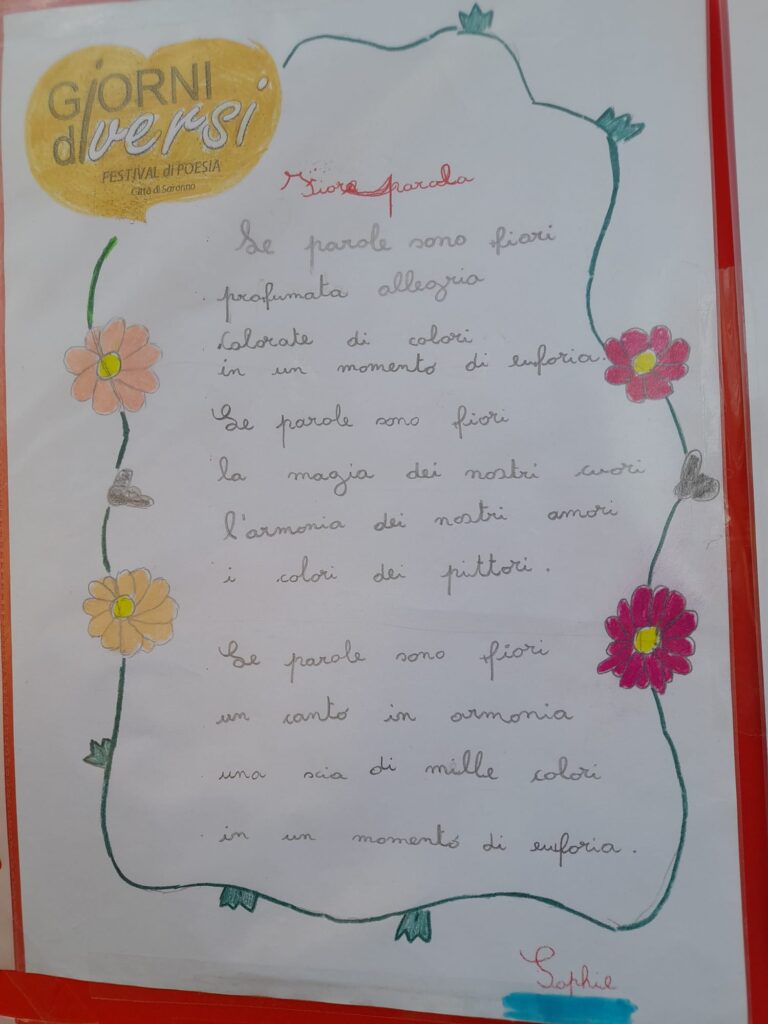 GiORNI
diversi
FESTIVAL di POESIA
Città di Saronno
Fiore parola
Le parole sono fiori
profumata allegria
colorate di colori
in un momento di euforia.
Le parole sono fiori
la magia dei nostri cuori
l'armonia dei nostri amori
i colori dei pittori.
Le parole sono fiori
un canto in armonia
una scia di mille colori
in un momento di euforia.
Sophie